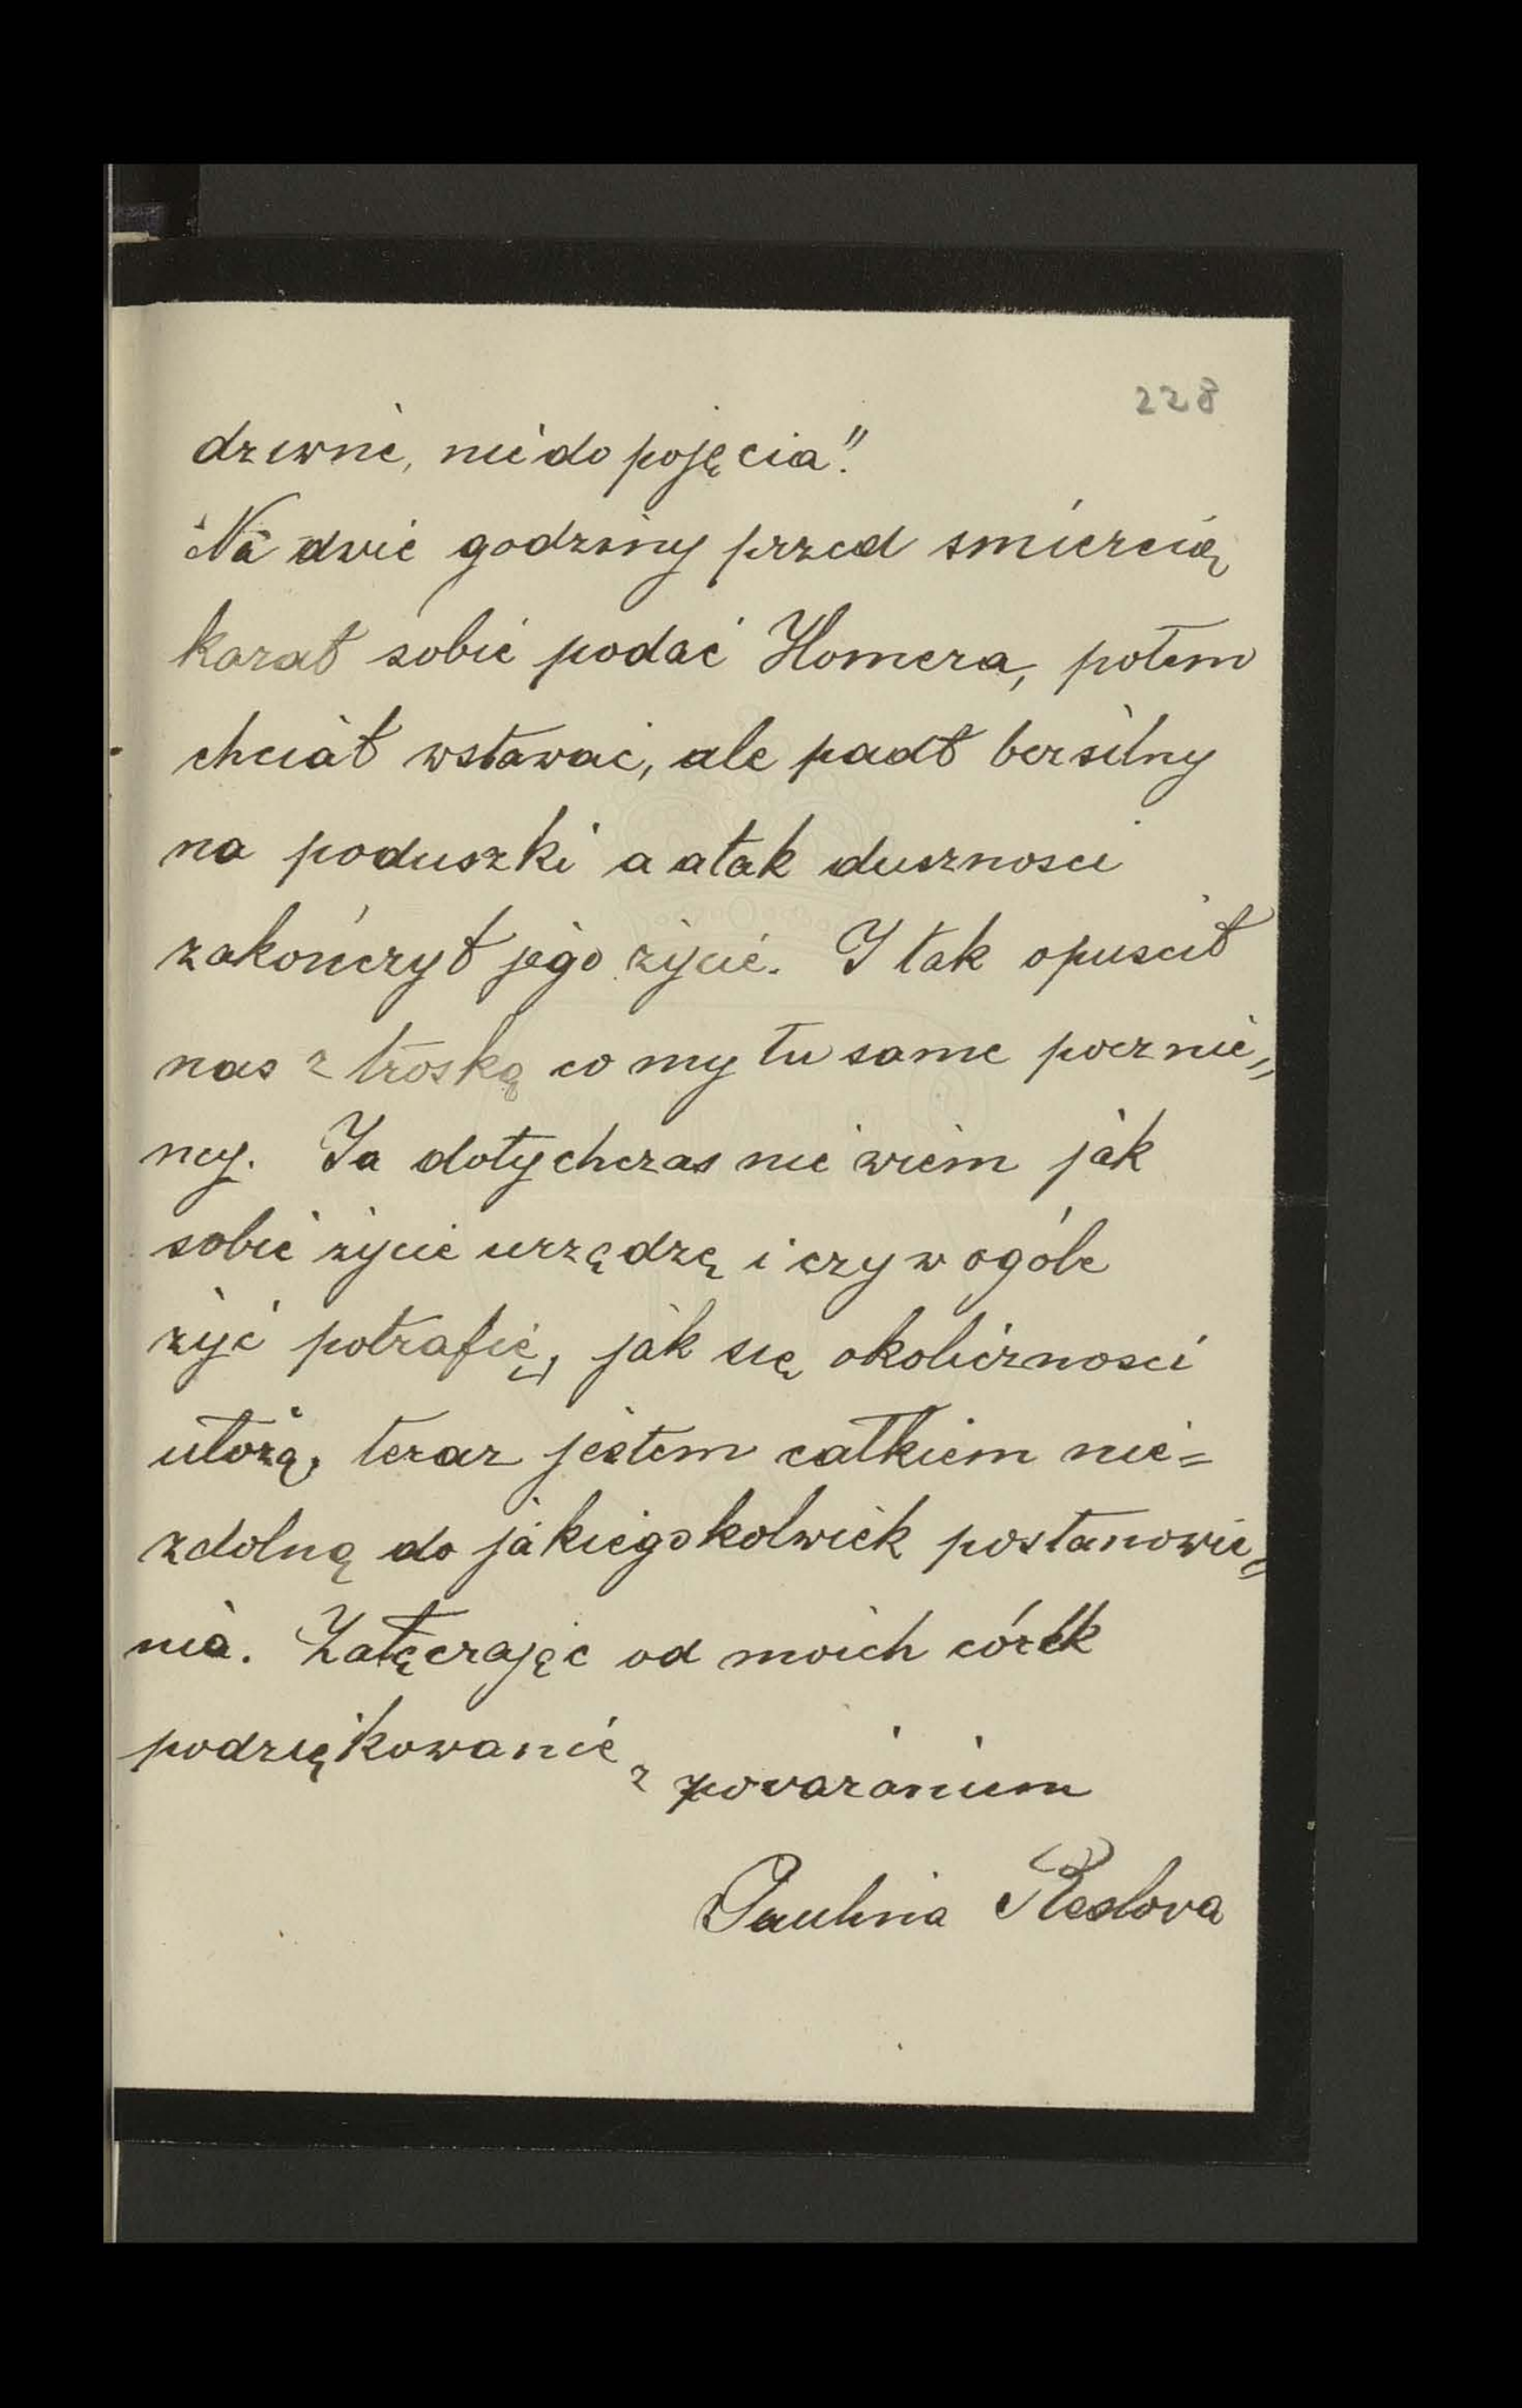 228
dziwne, nie do pojęcia".
Na dwie godziny przed śmiercią
kazał sobie podać Homera, potem
chciał wstawać, ale padł bezsilny
na poduszki a atak duszności
zakończył jego życie. I tak opuścił
nas z troską co my tu same pocznie„
my. Ja dotychczas nie wiem jak
sobie życie urządzę i czy w ogóle
żyć potrafię, jak się okoliczności
ułożą, teraz jestem całkiem nie=
zdolną do jakiegokolwiek postanowie„
nia. Załączając od moich córek
podziękowanie
z poważaniem
Paulina Reslova